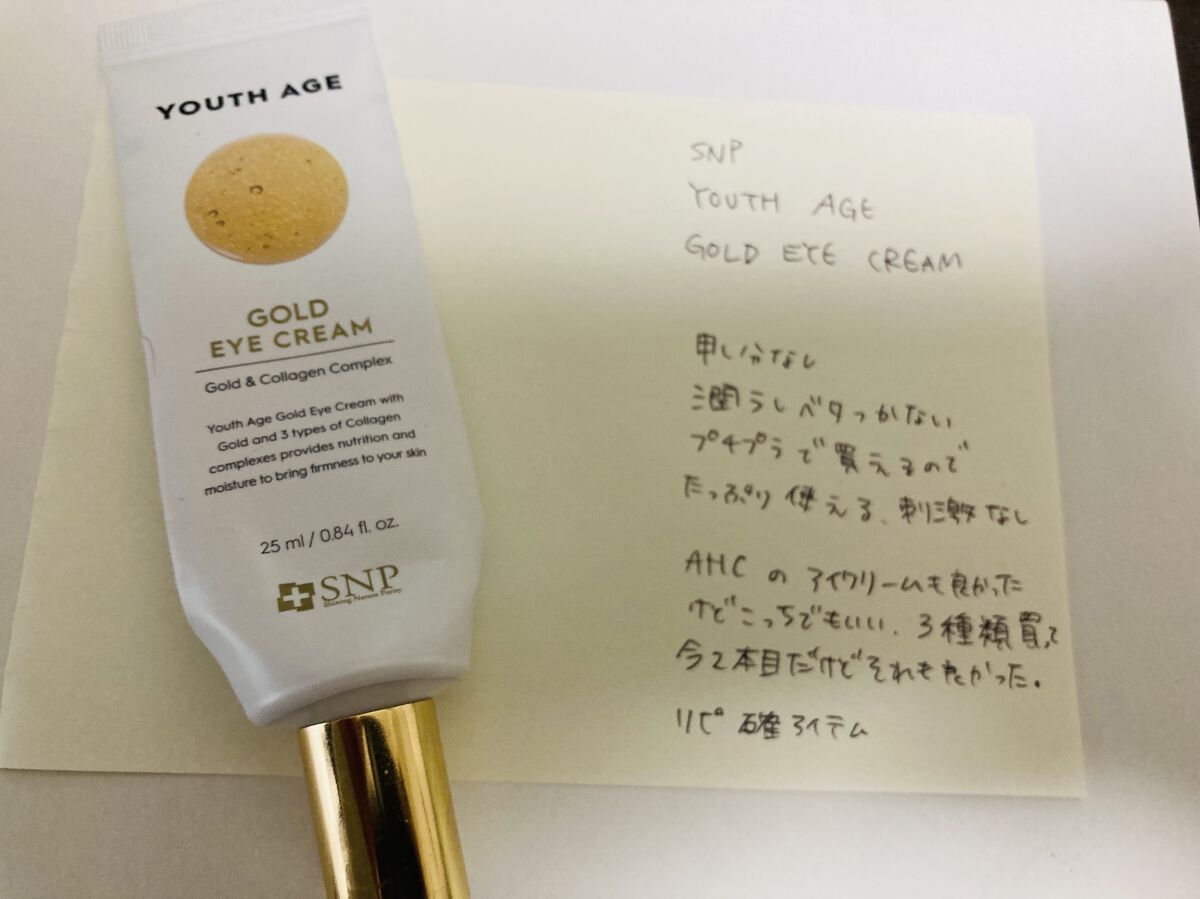 YOUTH AGE
GOLD
EYE CREAM
Gold & Collagen Complex
Youth Age Gold Eye Cream with
Gold and 3 types of Collagen
complexes provides nutrition and
moisture to bring firmness to your skin
25 ml / 0.84 fl. oz.
SNP
Shining Nature Purity
SNP
YOUTH AGE
GOLD EYE CREAM
申し分なし
潤うしベタつかない
プチプラで買えるので
たっぷり使える、刺激なし
AHCのアイクリームも良かった
けどこっちでもいい、3種類買って
今2本目だけどそれも良かった。
リピ確アイテム